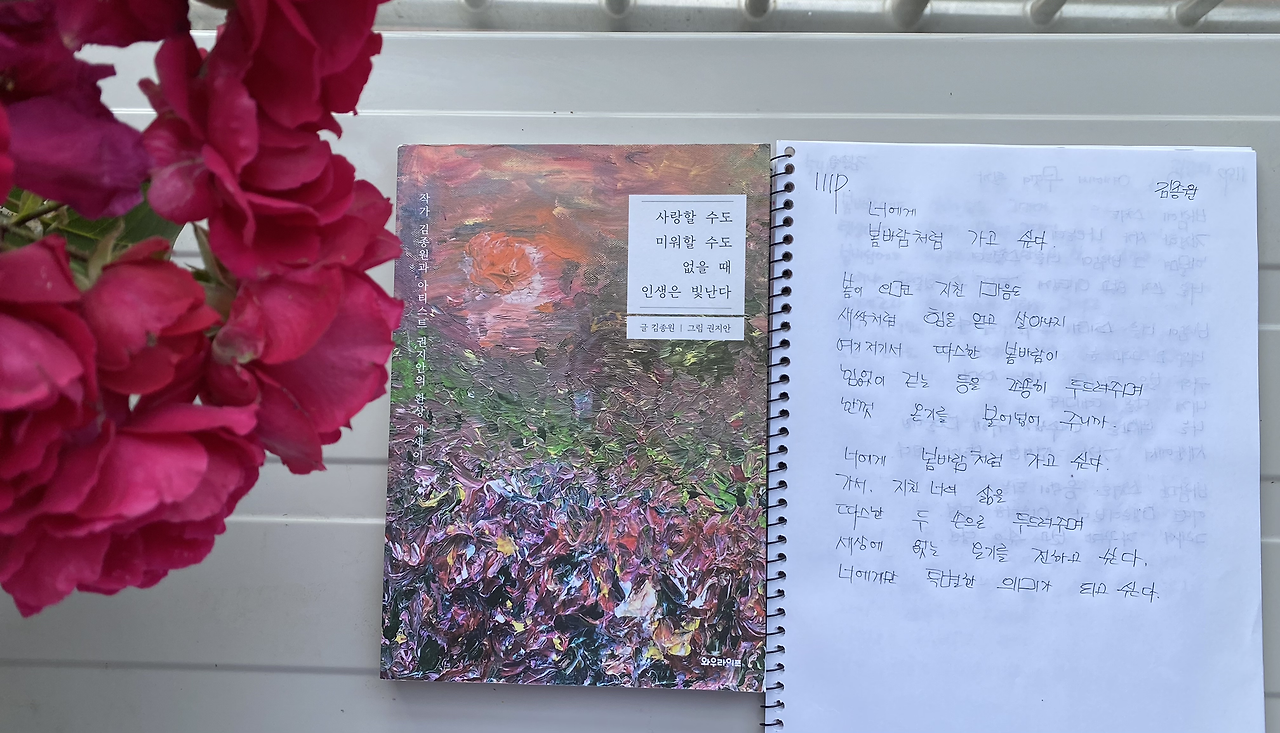 작가 김종원과 아티스트 권지안의 환상 에세이
사랑할 수도
미워할 수도
없을 때
인생은 빛난다
글 김종원 | 그림 권지안
와우라이프
111p.
김종원
너에게
봄바람처럼 가고 싶다.
봄이 오면 지친 마음도
새싹처럼 힘을 얻고 살아나지
여기저기서 따스한 봄바람이
힘없이 걷는 등을 조용히 두드려주며
한껏 온기를 불어넣어 주니까.
너에게 봄바람처럼 가고 싶다.
가서. 지친 너의 삶을
따스한 두 손으로 두드려주며
세상에 없는 온기를 전하고 싶다.
너에게만 특별한 의미가 되고 싶다.